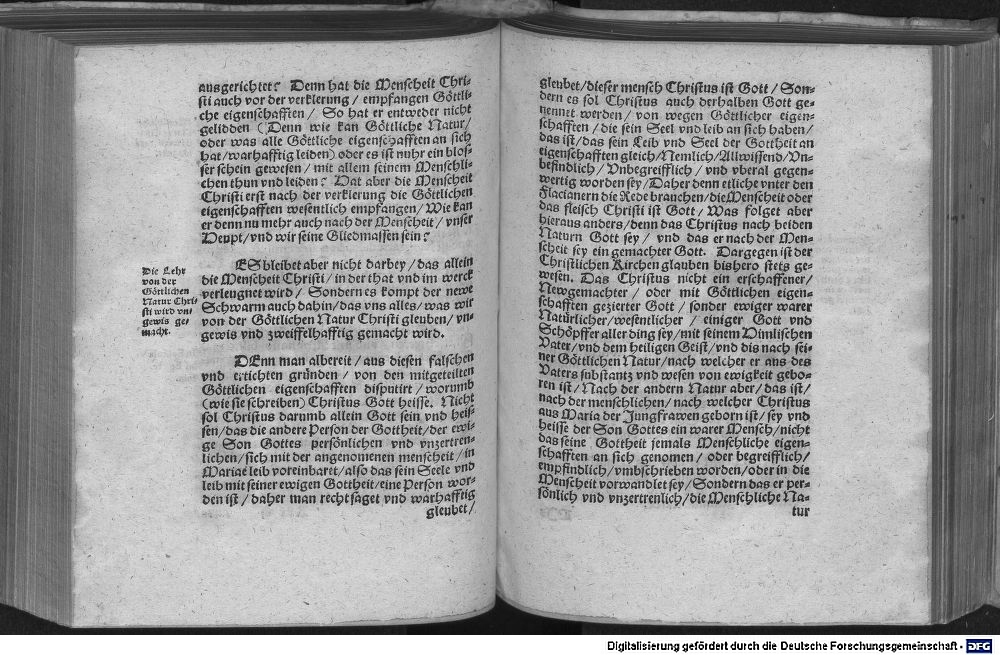 ausgerichtet? Denn hat die Menscheit Chri-
sti auch vor der verklerung / empfangen Göttli-
che eigenschafften / So hat er entweder nicht
gelidden (Denn wie kan Göttliche Natur /
oder was alle Göttliche eigenschafften an sich
hat / warhafftig leiden) oder es ist nuhr ein blos-
ser schein gewesen / mit allem seinem Menschli-
chen thun vnd leiden? Hat aber die Menscheit
Christi erst nach der verklerung die Göttlichen
eigenschafften wesentlich empfangen / Wie kan
er denn nu mehr auch nach der Menscheit / vnser
Heupt / vnd wir seine Gliedmassen sein?
Die Lehr
von der
Göttlichen
Natur Chri-
sti wird vn-
gewis ge-
macht.
ES bleibet aber nicht darbey / das allein
die Menscheit Christi / in der that vnd im werck
verleugnet wird / Sondern es kompt der newe
Schwarm auch dahin / das vns alles / was wir
von der Göttlichen Natur Christi gleuben / vn-
gewis vnd zweiffelhafftig gemacht wird.
DEnn man albereit / aus diesen falschen
vnd ertichten gründen / von den mitgeteilten
Göttlichen eigenschafften disputirt / worumb
(wie sie schreiben) Christus Gott heisse. Nicht
sol Christus darumb allein Gott sein vnd heis-
sen / das die andere Person der Gottheit / der ewi-
ge Son Gottes persönlichen vnd vnzertren-
lichen / sich mit der angenomenen menscheit / in
Mariae leib voreinbaret / also das sein Seele vnd
leib mit seiner ewigen Gottheit / eine Person wor-
den ist / daher man recht saget vnd warhafftig
gleubet /
gleubet / dieser mensch Christus ist Gott / Son-
dern es sol Christus auch derhalben Gott ge-
nennet werden / von wegen Göttlicher eigen-
schafften / die sein Seel vnd leib an sich haben /
das ist / das sein Leib vnd Seel der Gottheit an
eigenschafften gleich / Nemlich / Allwissend / Vn-
befindlich / Vnbegreifflich / vnd vberal gegen-
wertig worden sey / Daher denn etliche vnter den
Flacianern die Rede brauchen / die Menscheit oder
das fleisch Christi ist Gott / Was folget aber
hieraus anders / denn das Christus nach beiden
Naturn Gott sey / vnd das er nach der Men-
scheit sey ein gemachter Gott. Dargegen ist der
Christlichen Kirchen glauben bishero stets ge-
wesen. Das Christus nicht ein erschaffener /
Newgemachter / oder mit Göttlichen eigen-
schafften gezierter Gott / sonder ewiger warer
Natürlicher / wesentlicher / einiger Gott vnd
Schöpffer aller ding sey / mit seinem Himlischen
Vater / vnd dem heiligen Geist / vnd dis nach sei-
ner Göttlichen Natur / nach welcher er aus des
Vaters substantz vnd wesen von ewigkeit gebo-
ren ist / Nach der andern Natur aber / das ist /
nach der menschlichen / nach welcher Christus
aus Maria der Jungfrawen geborn ist / sey vnd
heisse der Son Gottes ein warer Mensch / nicht
das seine Gottheit jemals Menschliche eigen-
schafften an sich genomen / oder begreifflich /
empfindlich / vmbschrieben worden / oder in die
Menscheit vorwandlet sey / Sondern das er per-
sönlich vnd vnzertrenlich / die Menschliche Na-
tur
Digitalisierung gefördert durch die Deutsche Forschungsgemeinschaft - DFG